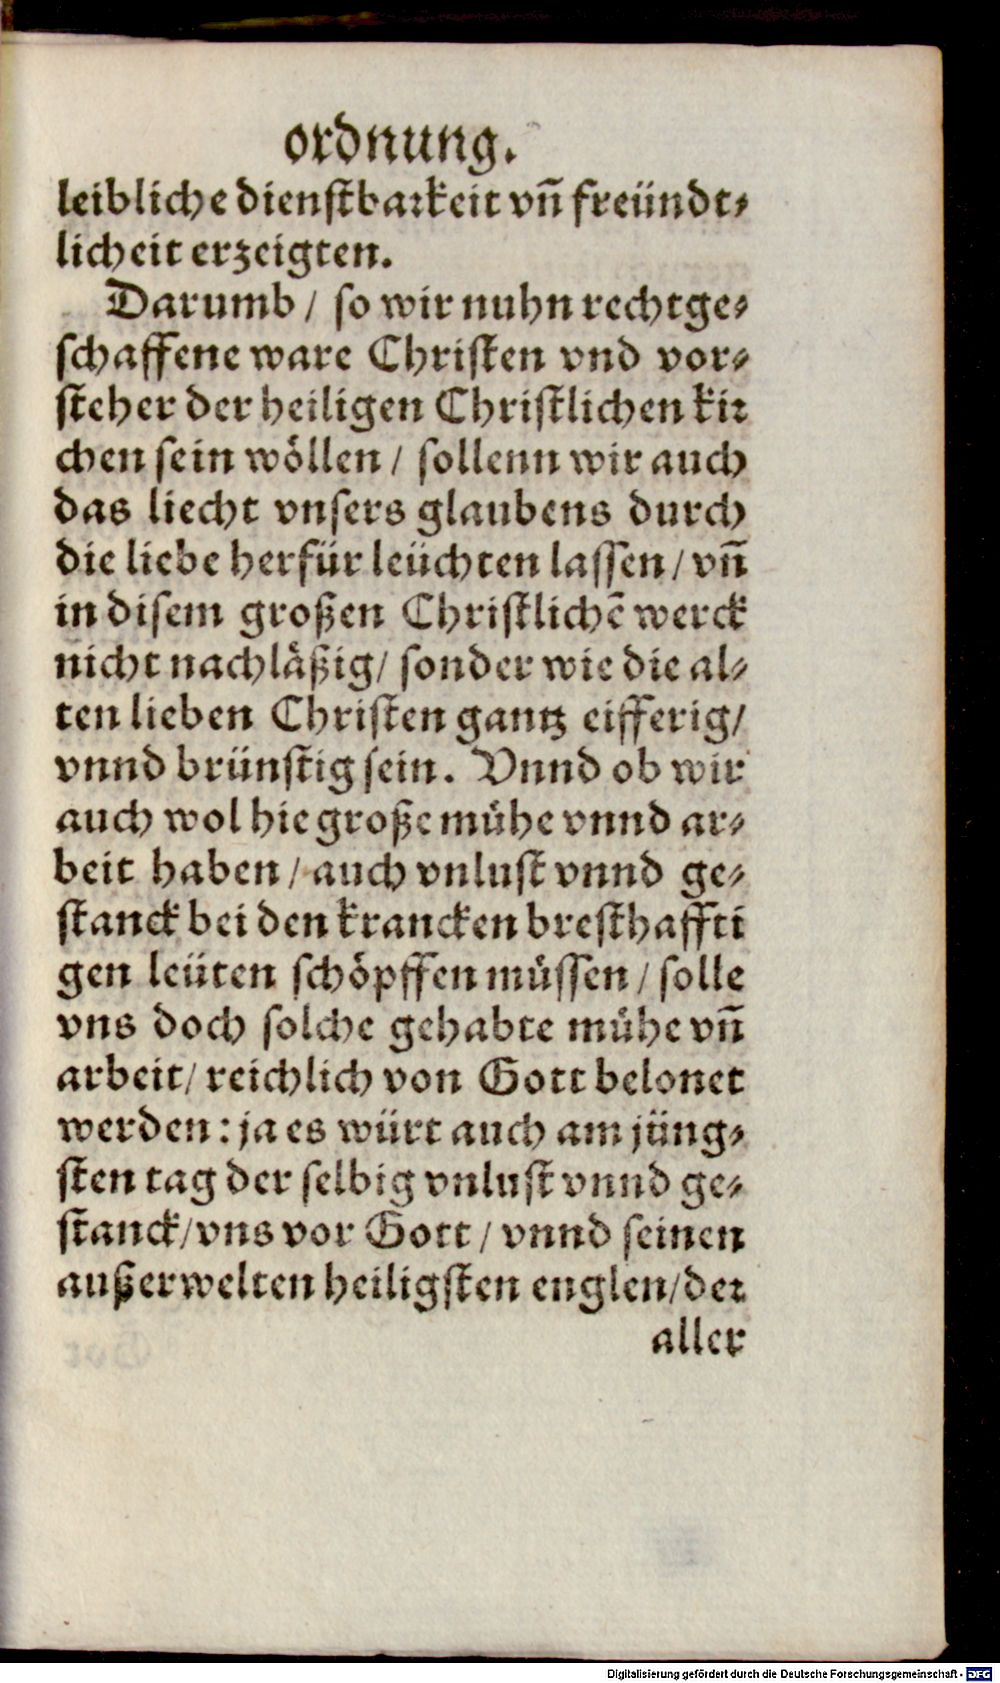 ordnung.
leibliche dienstbarkeit vñ freündt⸗
licheit erzeigten.
Darumb / so wir nuhn rechtge⸗
schaffene ware Christen vnd vor⸗
steher der heiligen Christlichen kir
chen sein wöllen / sollenn wir auch
das liecht vnsers glaubens durch
die liebe herfür leüchten lassen / vñ
in disem großen Christlichē werck
nicht nachläßig / sonder wie die al⸗
ten lieben Christen gantz eifferig /
vnnd brünstig sein. Vnnd ob wir
auch wol hie große mühe vnnd ar⸗
beit haben / auch vnlust vnnd ge⸗
stanck bei den krancken bresthaffti
gen leüten schöpffen müssen / solle
vns doch solche gehabte mühe vñ
arbeit / reichlich von Gott belonet
werden : ja es würt auch am jüng⸗
sten tag der selbig vnlust vnnd ge⸗
stanck / vns vor Gott / vnnd seinen
außerwelten heiligsten englen / der
aller
Digitalisierung gefördert durch die Deutsche Forschungsgemeinschaft - DFG